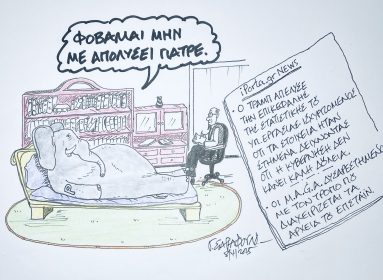 ΦΟΒΑΜΑΙ ΜΗΝ
ΜΕ ΑΠΟΛΥΣΕΙ ΓΙΑΤΡΕ.
iPorta.gr News
• Ο ΤΡΑΜΠ ΑΠΕΛΥΣΕ
ΤΗΝ ΕΠΙΚΕΦΑΛΗΣ
ΤΗΣ ΣΤΑΤΙΣΤΙΚΗΣ ΤΟΥ
ΥΠ. ΕΡΓΑΣΙΑΣ ΙΣΧΥΡΙΖΟΜΕΝΟΣ
ΟΤΙ ΤΑ ΣΤΟΙΧΕΙΑ ΗΤΑΝ
ΣΤΗΜΕΝΑ ΔΕΙΧΝΟΝΤΑΣ
ΟΤΙ Η ΚΥΒΕΡΝΗΣΗ ΔΕΝ
ΚΑΝΕΙ ΚΑΛΗ ΔΟΥΛΕΙΑ.
• ΟΙ M.A.G.A. ΔΥΣΑΡΕΣΤΗΜΕΝΟΙ
ΜΕ ΤΟΝ ΤΡΟΠΟ ΠΟΥ
ΔΙΑΧΕΙΡΙΖΕΤΑΙ ΤΑ
ΑΡΧΕΙΑ ΤΟΥ ΕΠΣΤΑΙΝ.